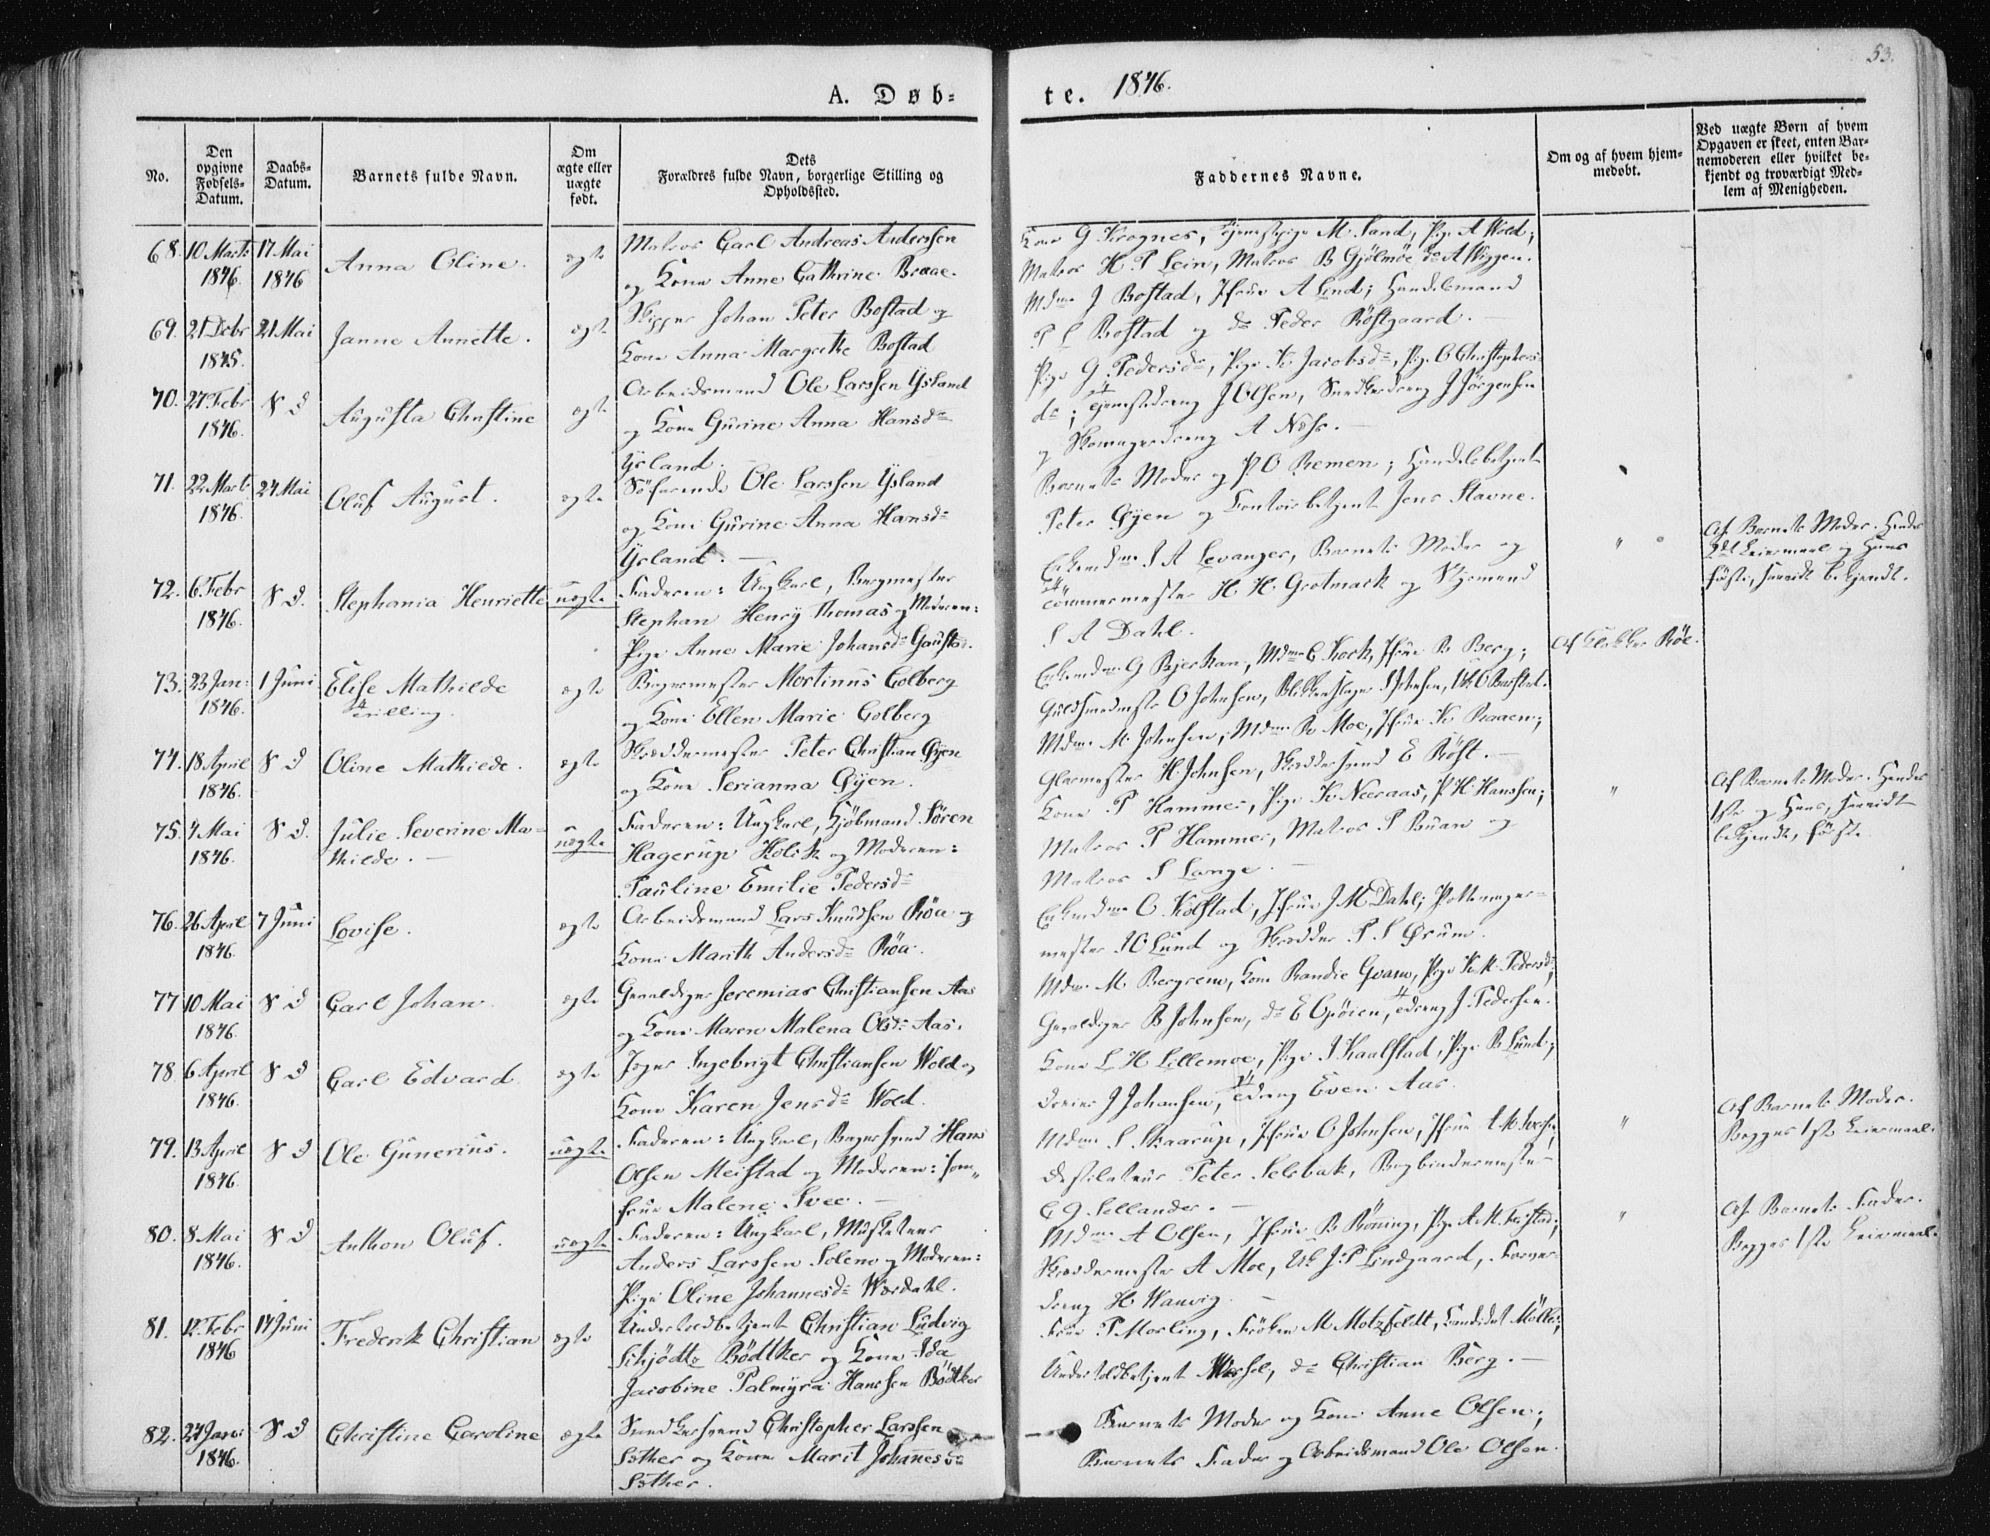 53.
A. Døb-
te. 1846.
No.
Den opgivne Fødsels-Datum.
Daabs-Datum.
Barnets fulde Navn.
Om ægte eller uægte født.
Dets Forældres fulde Navn, borgerlige Stilling og Opholdssted.
Faddernes Navne.
Om og af hvem hjem-medøbt.
Ved uægte Børn af hvem Opgaven er skeet, enten Bar-nemoderen eller hvilket be-kjendt og troværdigt Med-lem af Menigheden.
68. 10 Marts 1846. 17 Mai 1846 Anna Oline. ægte
Matros Carl Andreas Anderssen
og Kone Anne Cathrine Braae.
Kone G Krognes, Tjenestepige M. Sand, Pige A Wold;
Matros H. P Lein, Matros B Gjölmöe, do A Wiggen.
69. 21 Debr 1845. 21 Mai Janne Annette. ægte
Skipper Johan Peter Bostad og
Kone Anna Margrethe Bostad
Mdme J Bostad, Jfrue A Lind; Handelsmand
P L Bostad og do Peder Röstgaard.
70. 27 Febr 1846. S D Augusta Christine ægte
Arbeidsmand Ole Larssen Ysland
og Kone Gurine Anna Hansdr
Ysland.
Pige G Pedersdr, Pige K Jacobsdr, Pige O Christophers-
dr; Tjenestedreng J Olsen, Snedkerdreng J Jörgensen
og Skomagerdreng A Näss.
71. 22 Marts 1846. 24 Mai Oluf August. ægte
Söfarende Ole Larssen Ysland
og Kone Gurine Anna Hansdr
Ysland.
Barnets Moder og P. O Remen; Handelsbetjent
Peter Öyen og Contoirbetjent Jens Stavne.
72. 6 Febr 1846. S D. Stephania Henriette uægte
Faderen: Ungkarl, Bergmester
Stephan Henry Thomas og Moderen:
Pige Anne Marie Johansdr
Enkemdme S A Levanger, Barnets Moder og
Tömmermester H H. Grotmack og Styrmand
S A Dahl.
"
Af Barnets Moder. Hendes
2det Leiermaal og Hans
første, saavidt bekjendt.
73. 23 Jan: 1846. 1 Juni Elise Mathilde Trilling. ægte
Bagermester Mortinus Colberg
og Kone Ellen Marie Colberg
Enkemdme G Bjerkan, Mdme C Kock, Jfrue B Berg;
Guldsmedmester O Johnsen, Blikkenslager Johnsen,
Af Klokker Röe.
74. 18 April 1846. S D Oline Mathilde. ægte
Skræddermester Peter Christian Öyen
og Kone Serianna Öyen.
Mdme M. Johnsen, Mdme B Moe, Jfrue K Raaen;
Glarmester H. Johnsen, Skræddersvend E Röst.
75. 4 Mai 1846. S D. Julie Severine Ma-
thilde. uægte
Faderen: Ungkarl, Kjöbmand Sören
Hagerup Holck og Moderen:
Pauline Emilie Pedersdr
Kone P Hammer, Pige K Neeraas, P H Hanssen;
Matros P Hammer, Matros P Buan og
Matros S Lange.
"
Af Barnets Moder. Hendes
1ste og Hans, saavidt
bekjendt, første.
76. 26 April 1846. 7 Juni Lovise. ægte
Arbeidsmand Lars Knudsen Röa og
Kone Marith Andersdr Röa.
Enkemdme C. Kolstad, Jfrue J M Dahl; Pottemager-
mester Lund og Skrædder P. S Örum.
77 10 Mai 1846. S D Carl Johan. ægte
Gevaldiger Jeremias Christiansen Aas
og Kone Maren Malena Olsdr Aas.
Mdme M. Bergrem, Kone Randie Gvam, Pige K. M. Pedersdr;
Gevaldiger B Johnsen, do E Opöien, Tdreng J. Pedersen.
78 6 April 1846. S D Carl Edvard ægte
Jæger Ingebrigt Christiansen Wold og
Kone Karen Jensdr Wold.
Kone L. H Lillemoe, Pige Kaalstad, Pige B Lund;
Dreier J Johansen, Tdreng Even Aas.
79. 13 April 1846. S D Ole Gunerius. uægte
Faderen: Ungkarl, Bagersvend Hans
Olsen Meistad og Moderen: Jom-
frue Malene Svee.
Mdme S Skaarup, Jfrue O Johnsen, Jfrue
Destilateur Peter Selsbak, Bogbindermester
C J. Sellander.
"
Af Barnets Moder.
Begges 1ste Leiermaal.
80. 8 Mai 1846. S D Anthon Oluf. uægte
Faderen: Ungkarl, Musketeer
Anders Larssen Solem og Moderen:
Pige Oline Johannesdr Wærdahl.
Mdme A Olsen, Jfrue B Röning, Pige A. M.
Skræddermester A Moe, J. P Lindgaard,
dreng H Wanvig.
"
Af Barnets Fader.
Begges 1ste Leiermaal.
81. 12 Febr 1846 14 Juni Frederik Christian ægte
Undertoldbetjent Christian Ludvig
Schjödtz Bödtker og Kone Ida
Jacobine Palmyra Hanssen Bödtker
Frue P Morling, Fröken M Motzfeldt, Candidat Möller,
Undertoldbetjent Wessel, do Christian Berg.
82. 24 Januar 1846. S D Christine Caroline ægte
Snedkersvend Christopher Larssen
Söther og Kone Marit Johanesdr
Söther.
Barnets Moder og Kone Anne Olsen;
Barnets Fader og Arbeidsmand Ole Olsen.